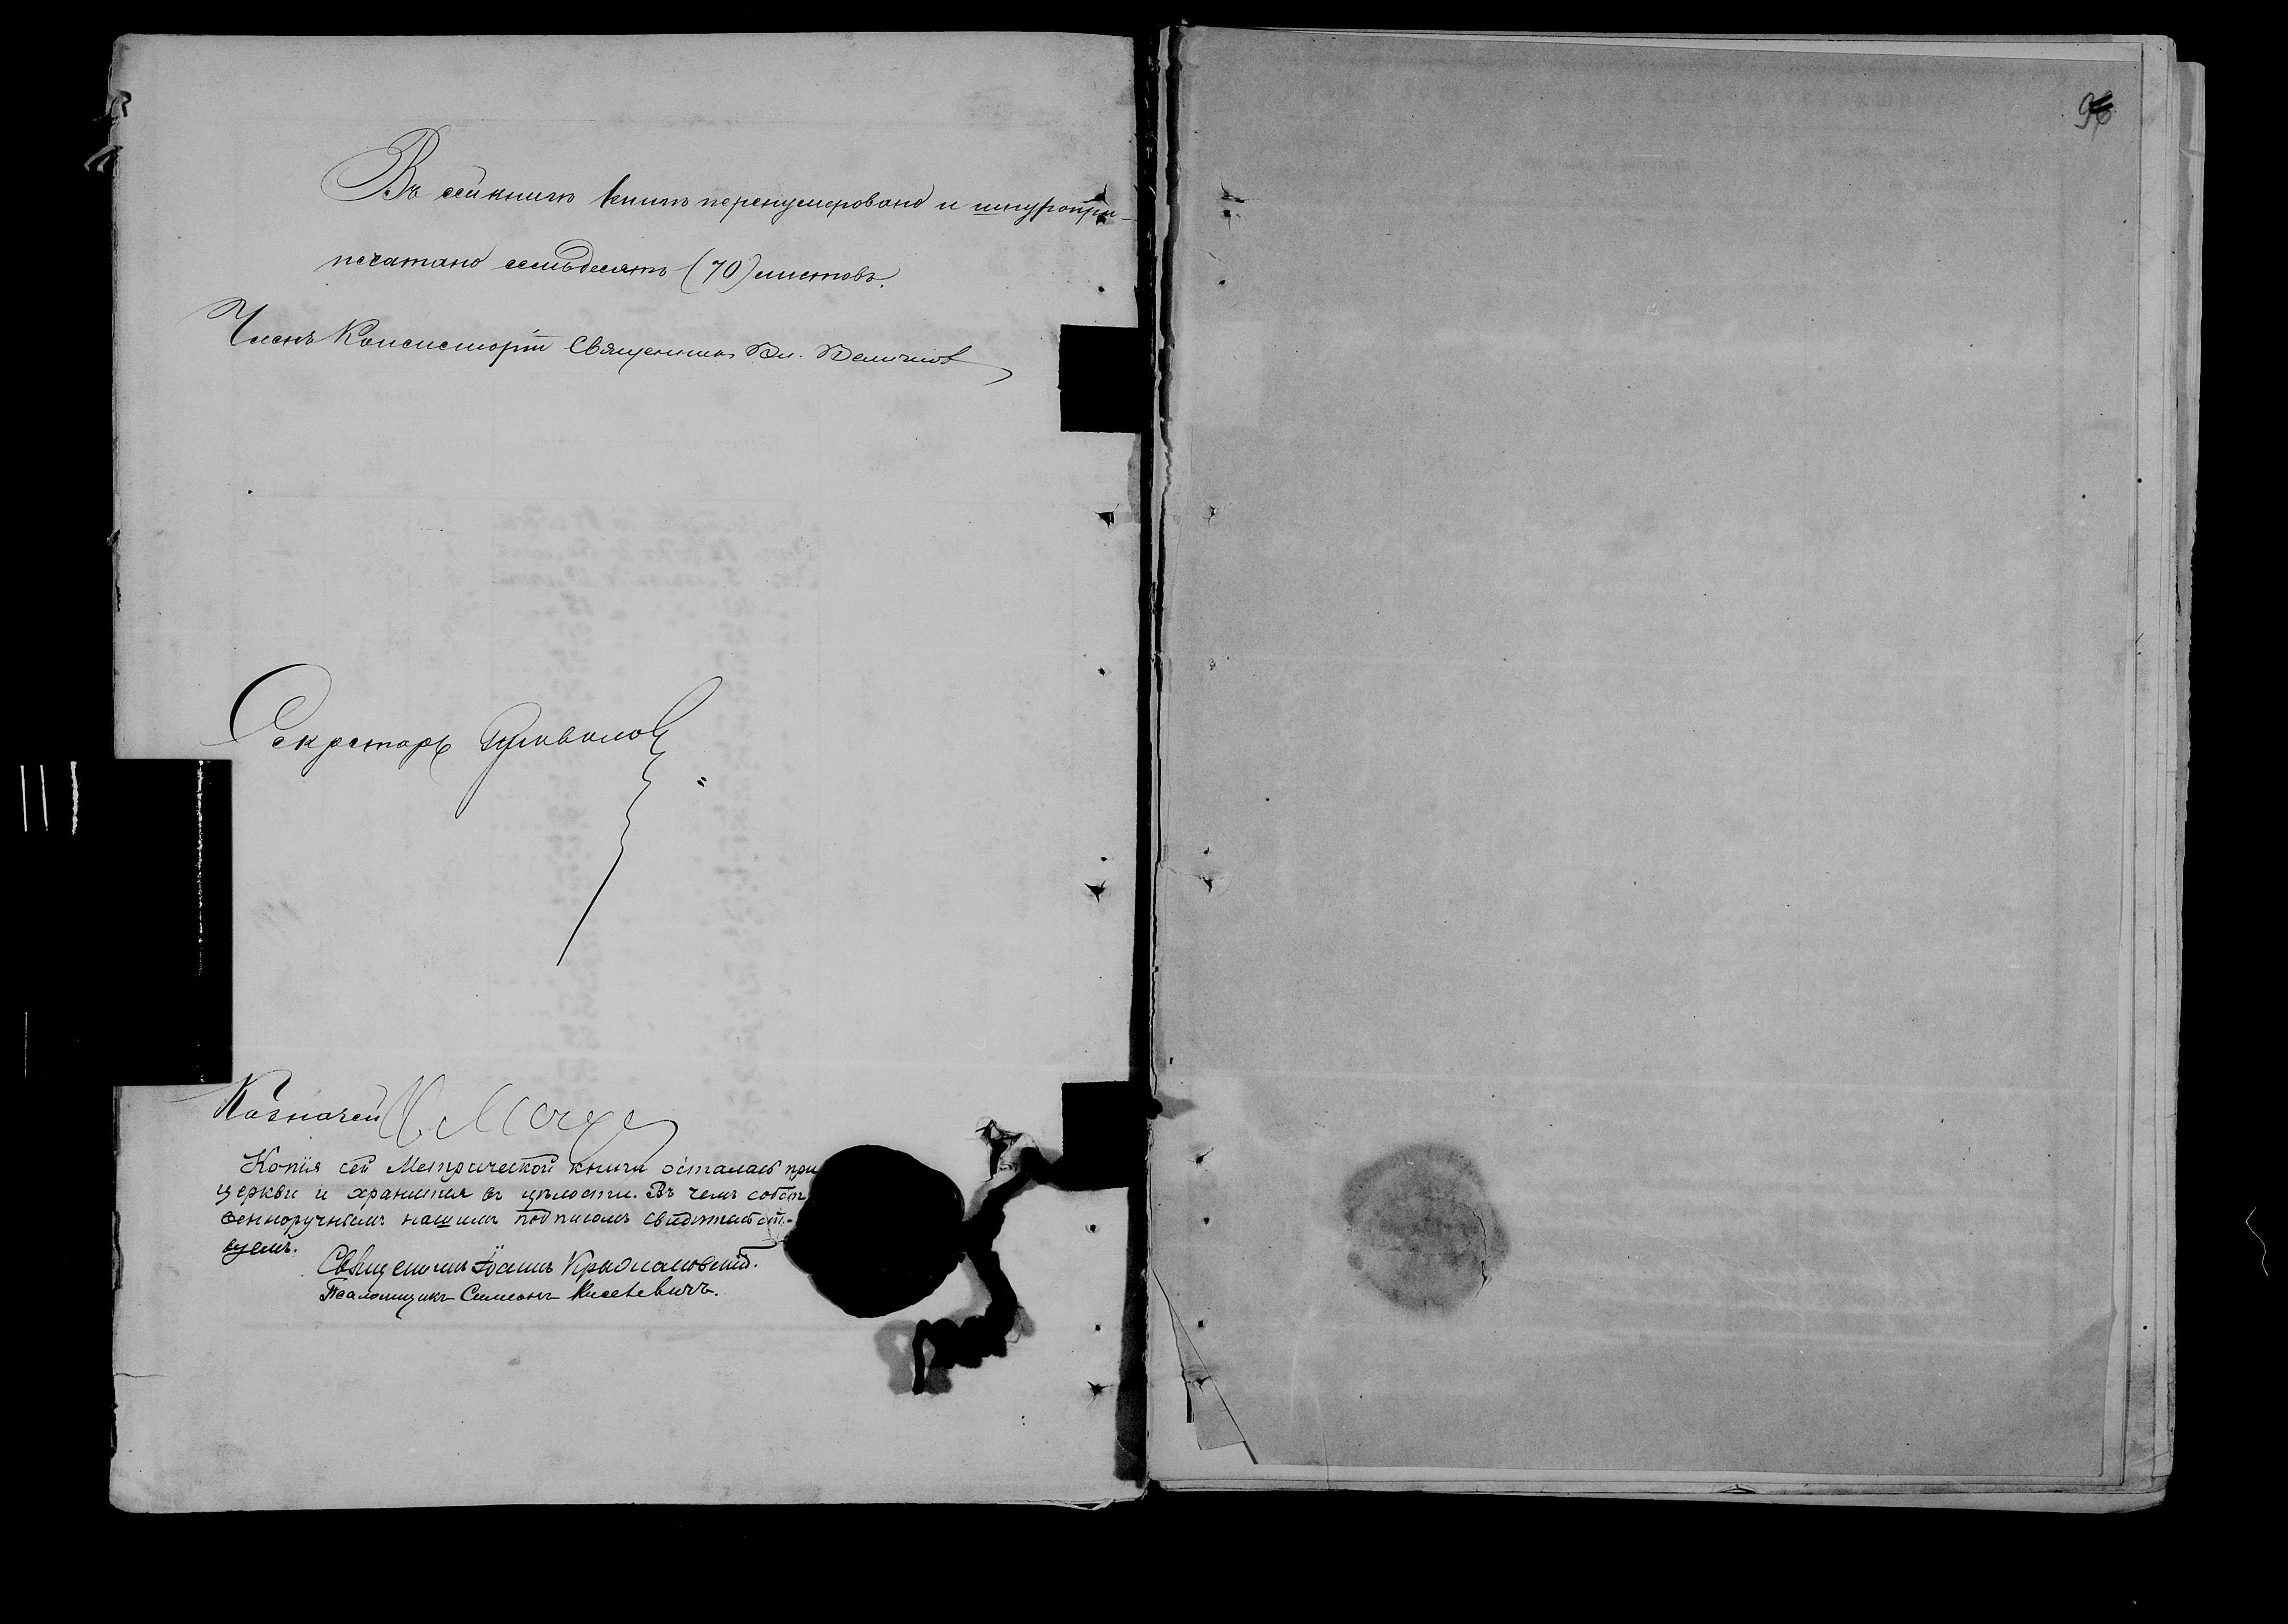 96
Въ сей книгѣ книгѣ перенумеровано и шнуропри-
печатано семьдесятъ (70) листовъ.
Членъ Консисторіи Священникъ Вл.
Секретарь
Казначей
Копія сей Метрической книги осталась при
церкви и хранится въ цѣлости. Въ чемъ собст
венноручнымъ нашимъ подписомъ свидѣтельст-
вуемъ.
Священникъ Іоаннъ
Псаломщикъ Симеонъ Киселевичъ.